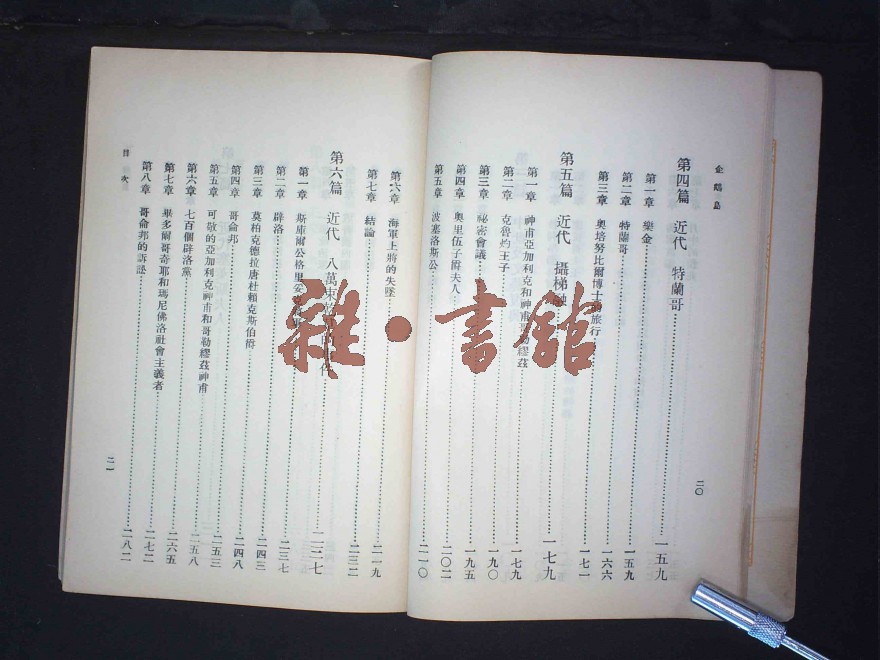 企鵝島
第四篇 近代 特蘭哥……一五九
第一章 樂金……一五九
第二章 特蘭哥……一六六
第三章 奧培努比爾博士的旅行……一七一
第五篇 近代 攝梯……一七九
第一章 神甫亞加利克和神甫哥勒繆茲……一七九
第二章 克魯灼王子……一九〇
第三章 祕密會議……一九五
第四章 奧里伍子爵夫人……二〇二
第五章 波塞洛斯公……二一〇
二〇
第六章 海軍上將的失墜……二一九
第七章 結論……二三二
第六篇 近代 八萬束……二三七
第一章 斯庫爾公格里……二三七
第二章 辟洛……二四三
第三章 莫柏克德拉唐杜賴克斯伯爵……二四八
第四章 哥侖邦……二五三
第五章 可敬的亞加利克神甫和哥勒繆茲神甫……二五八
第六章 七百個辟洛黨……二六五
第七章 畢多爾哥奇耶和瑪尼佛洛社會主義者……二七二
第八章 哥侖邦的訴訟……二八二
目次
二一
雜·書館